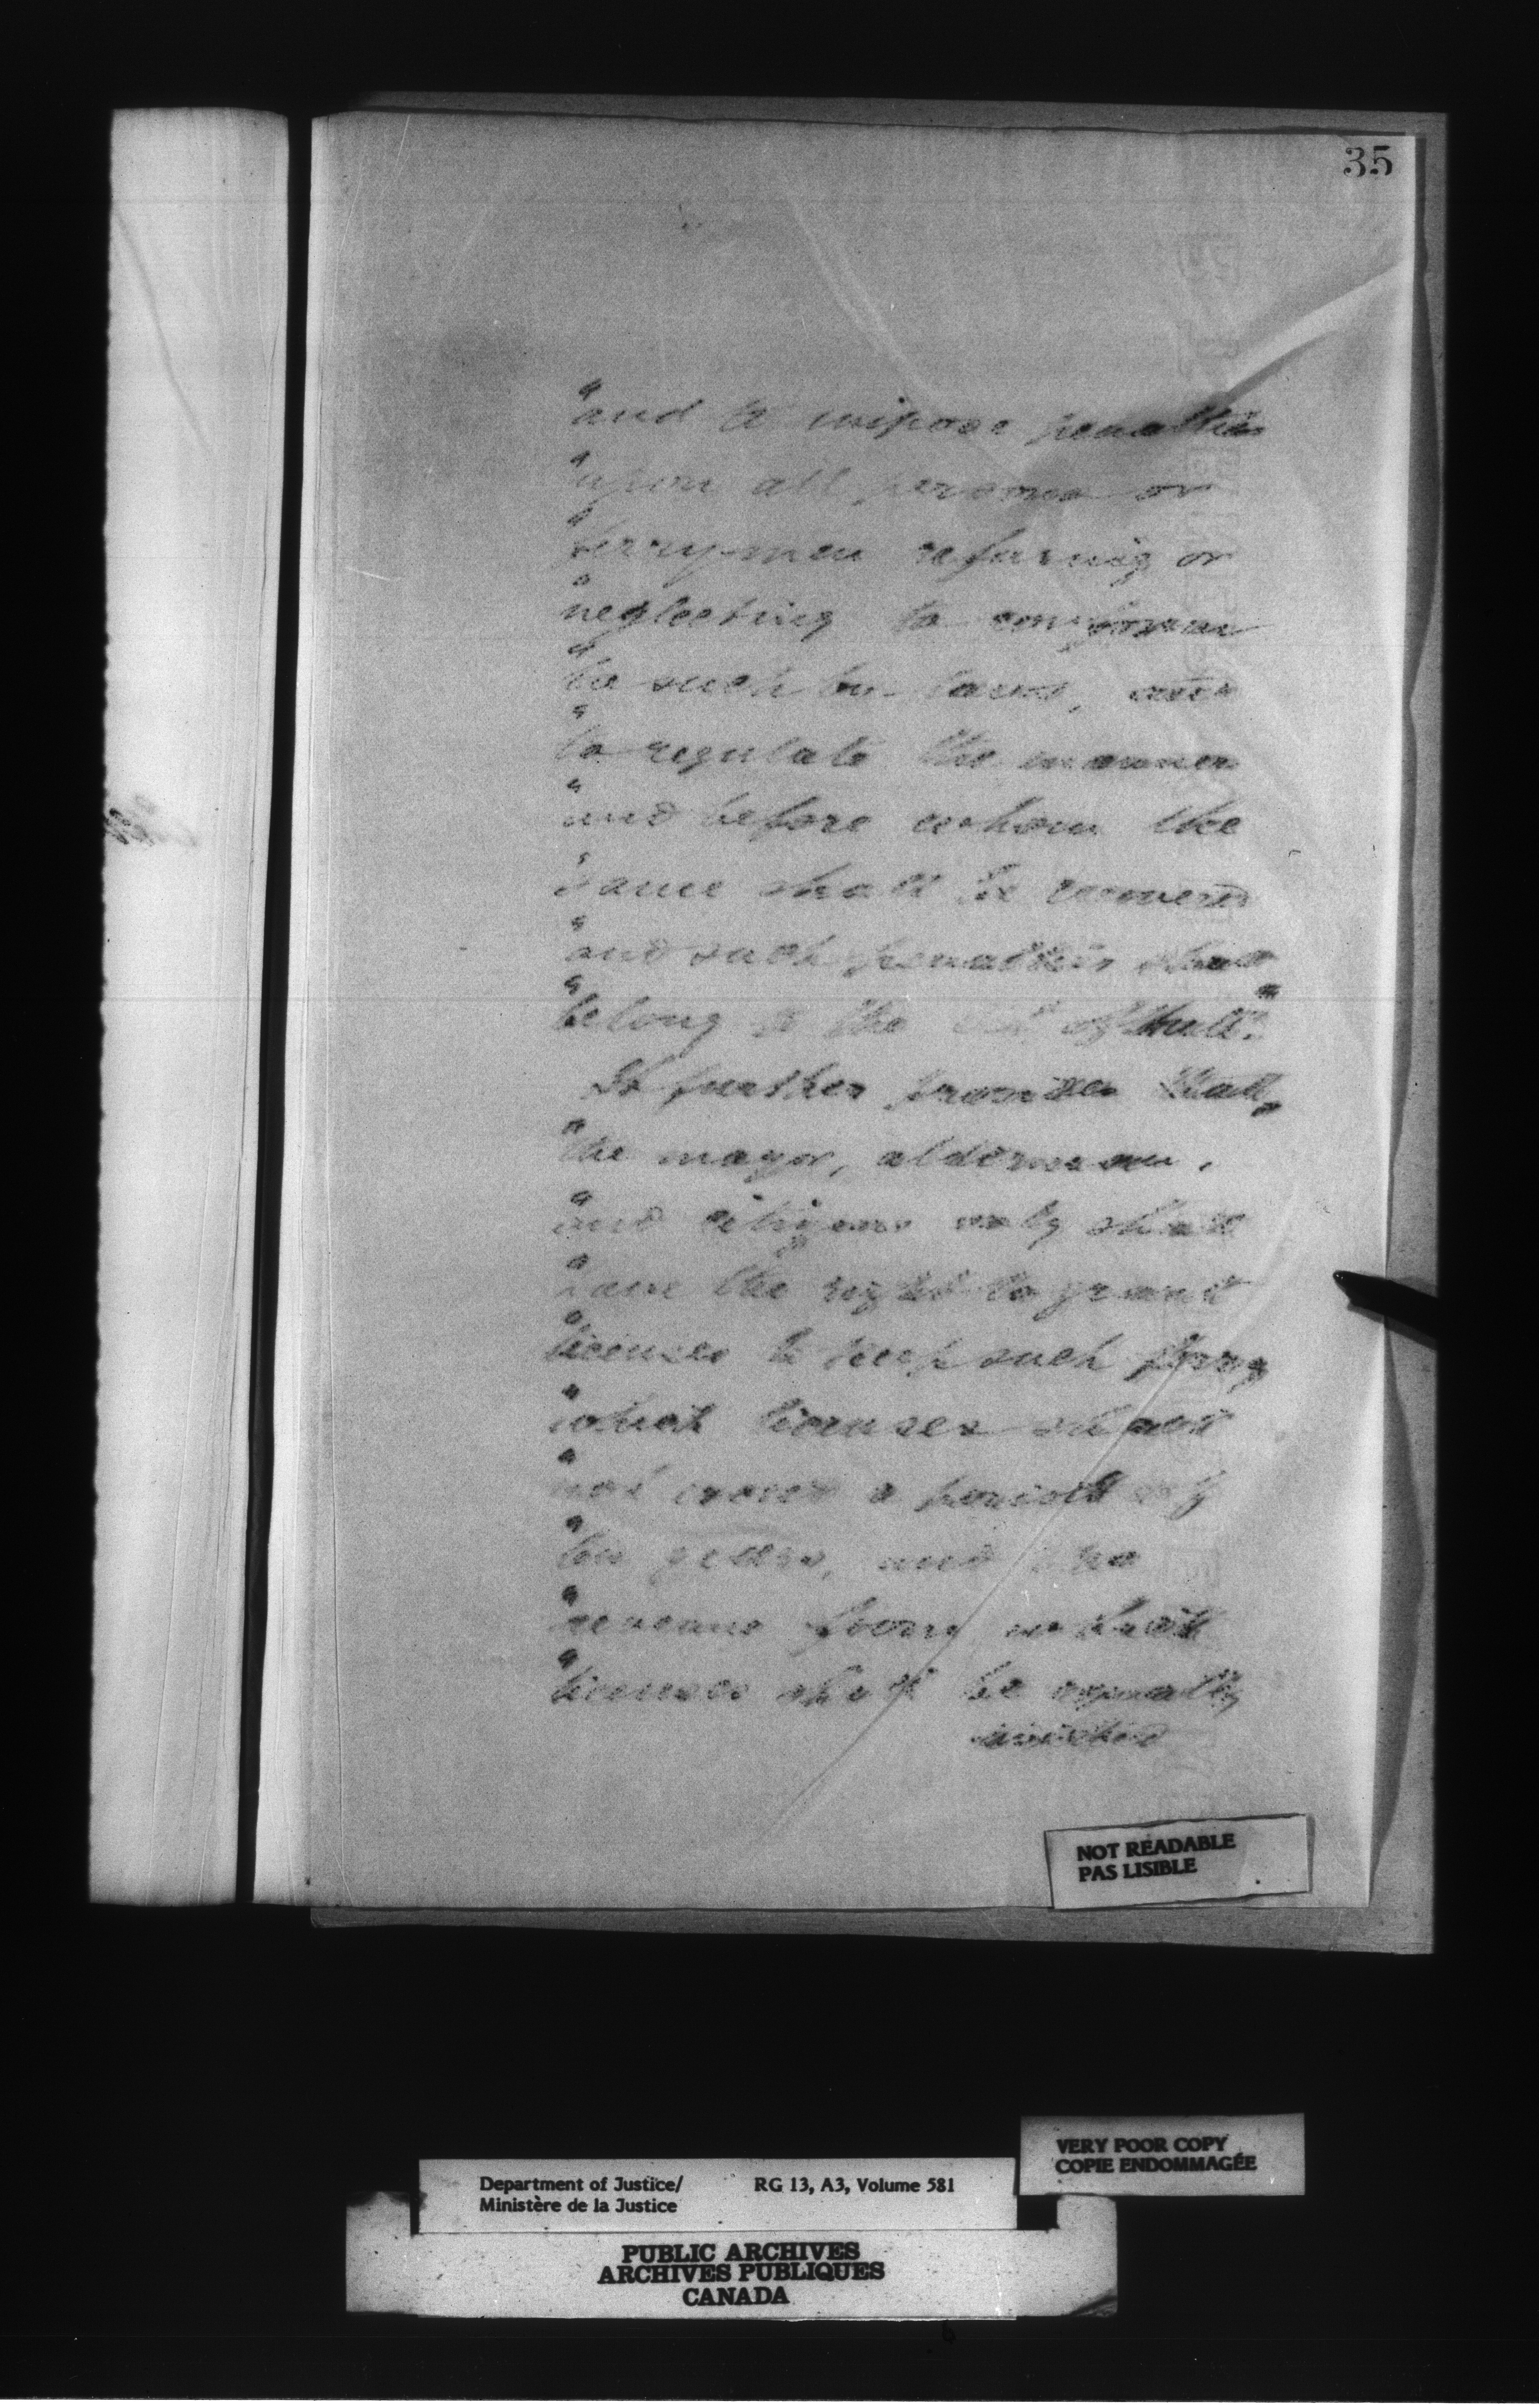 35
"and to impose penalties
"upon all persons or
"ferrymen refusing or
"neglecting to conform
"to such by-laws, and
"to regulate the manner
"and before whom the
"same shall be recovered
"and such penalties shall
"belong to the of Hull".
It further provides that,
"the mayor, aldermen,
"and citizens only shall
"have the right to grant
"licenses to keep such ferry
"which licenses shall
"not exceed a period of
"ten years, and the
"revenue from which
"licenses shall be equally
divided
NOT READABLE
PAS LISIBLE
VERY POOR COPY
COPIE ENDOMMAGÉE
Department of Justice/ RG 13, A3, Volume 581
Ministère de la Justice
PUBLIC ARCHIVES
ARCHIVES PUBLIQUES
CANADA